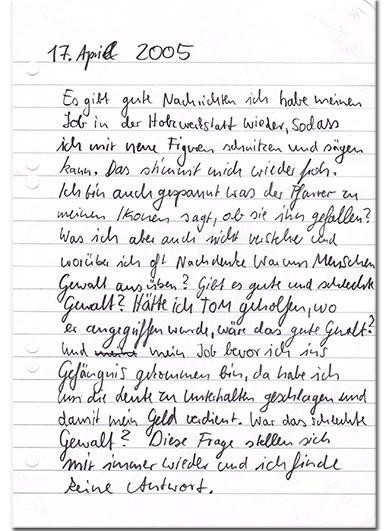 17. April 2005
Es gibt gute Nachrichten ich habe meinen
Job in der Holzwerkstatt wieder, sodass
ich mir neue Figuren schnitzen und sägen
kann. Das stimmt mich wieder froh.
Ich bin auch gespannt was der Pfarrer zu
meinen Ikonen sagt, ob sie ihm gefallen?
Was ich aber auch nicht verstehe und
worüber ich oft Nachdenke Warum Menschen
Gewalt ausüben? Gibt es gute und schlechte
Gewalt? Hätte ich TOM geholfen, wo
er angegriffen wurde, wäre das gute Gewalt?
Und mein Job bevor ich ins
Gefängnis gekommen bin, da habe ich
um die Leute zu Unterhalten geschlagen und
damit mein Geld verdient. War das schlechte
Gewalt? Diese Frage stellen sich
mir immer wieder und ich finde
keine Antwort.